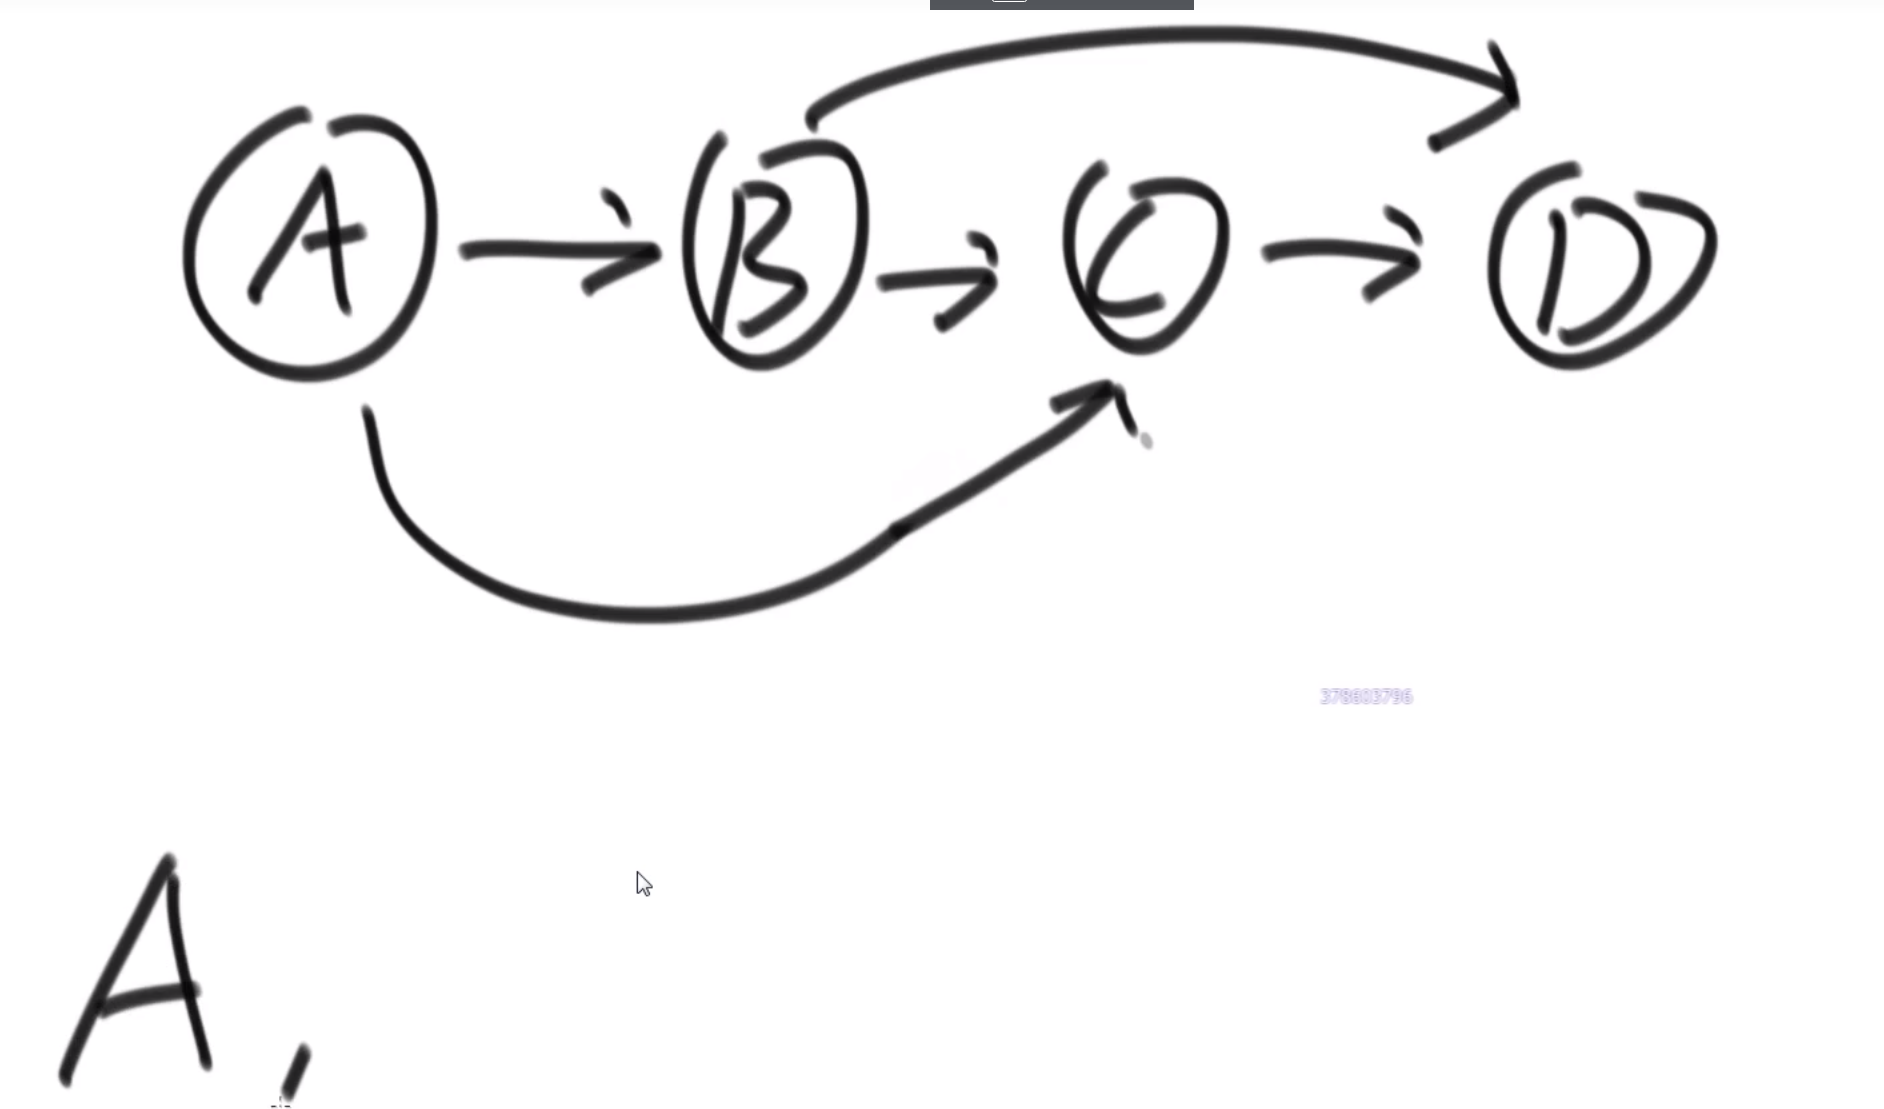 A B C D
378603796
A,